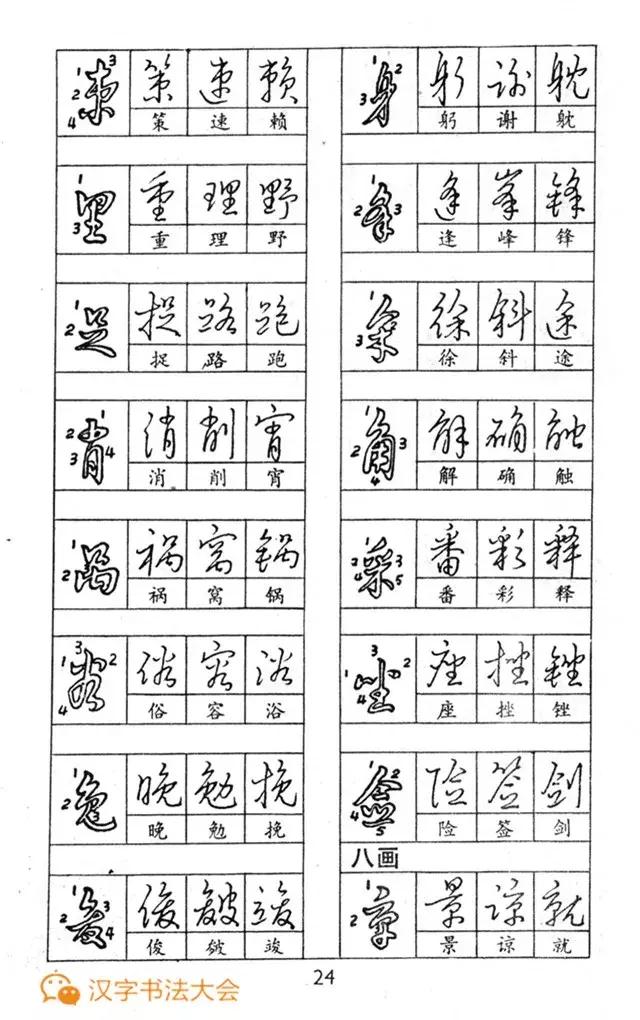 束 策 速 赖
策 速 赖
里 重 理 野
重 理 野
足 捉 路 跑
捉 路 跑
肖 消 削 宵
消 削 宵
呙 祸 窝 锅
祸 窝 锅
谷 俗 容 浴
俗 容 浴
免 晚 勉 挽
晚 勉 挽
夋 俊 皴 竣
俊 皴 竣
身 躬 谢 耽
躬 谢 躭
夆 逢 峰 锋
逢 峰 锋
余 徐 斜 途
徐 斜 途
角 解 确 触
解 确 触
采 番 彩 释
番 彩 释
坐 座 挫 锉
座 挫 锉
佥 险 签 剑
险 签 剑
八画
京 景 谅 就
景 谅 就
24
汉字书法大会